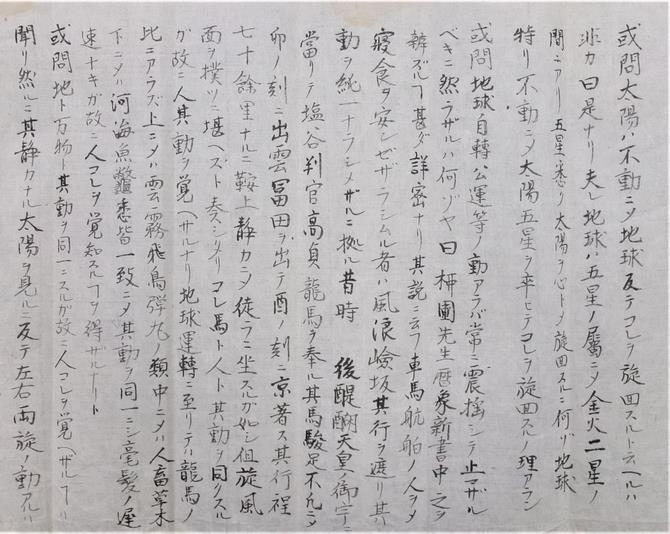 或問太陽ハ不動ニメ地球反テコレヲ旋回スルトユヘルハ
非カ曰是ナリ夫レ地球ハ五星ノ屬ニメ金火二星ノ
間ニアリ五星ハ悉ク太陽ヲ心トメ旋回スルニ何ゾ地球
特リ不動ニメ太陽五星ヲ率ヒテコレヲ旋回スルノ理アラン
或問地球自轉公運等ノ動アラバ常ニ震揺シテ止マザル
ベキニ然ラザルハ何ゾヤ曰柳圃先生暦象新書中之ヲ
辨ズルヿ甚ダ詳密ナリ其説ニ云フ車馬航舶ノ人ヲメ
寝食ヲ安ンゼザラシムル者ハ風浪嶮坂其行ヲ遮リ其
動ヲ純一ナラシメザルニ拠ル昔時 後醍醐天皇ノ御宇ニ
當リテ塩谷判官高貞龍馬ヲ奉ル其馬駿足不凡ニメ
卯ノ刻ニ出雲冨田ヲ出テ酉ノ刻ニ京著ス其行程
七十餘里ナルニ鞍上静カニメ徒ラニ坐スルガ如シ但旋風
面ヲ撲ツニ堪ヘズト奏シタリコレ馬ト人ト其動ヲ同クスル
ガ故ニ人其動ヲ覚ヘザルナリ地球運轉ニ至リテハ龍馬ノ
比ニアラズ上ニメハ雲霧飛鳥弾丸ノ類中ニメハ人畜草木
下ニメハ河海魚鼈悉皆一致ニメ其動ヲ同一ニシ毫髪ノ遅
速ナキガ故ニ人コレヲ覚知スルヿヲ得ザルナリト
或問地ト万物ト其動ヲ同一ニスルガ故ニ人コレヲ覚ヘザルヿハ
聞リ然ルニ其静カナル太陽ヲ見ルニ反テ左右両旋ノ動アルハ